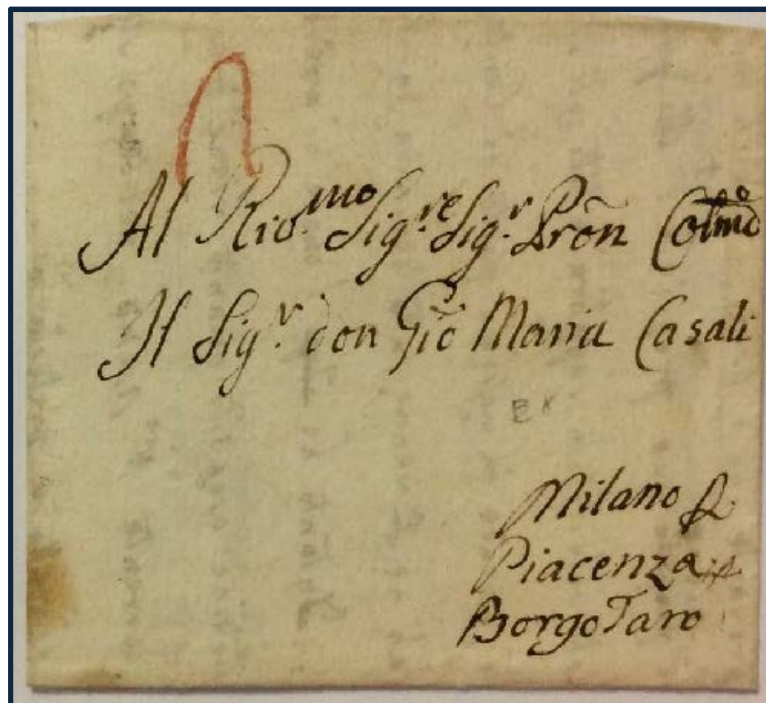 Al Rio.mo Sig.re Sig.r Prõn Colmõ
Il Sig.r don Gio Maria Casali
Milano
Piacenza
Borgo Taro